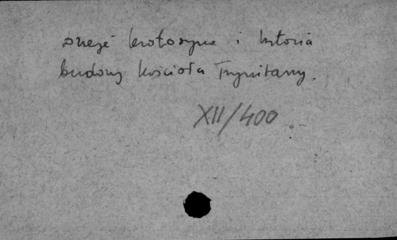 dzieje krotoszyna i historia
budowy kościoła Trynitarzy.
XII/400